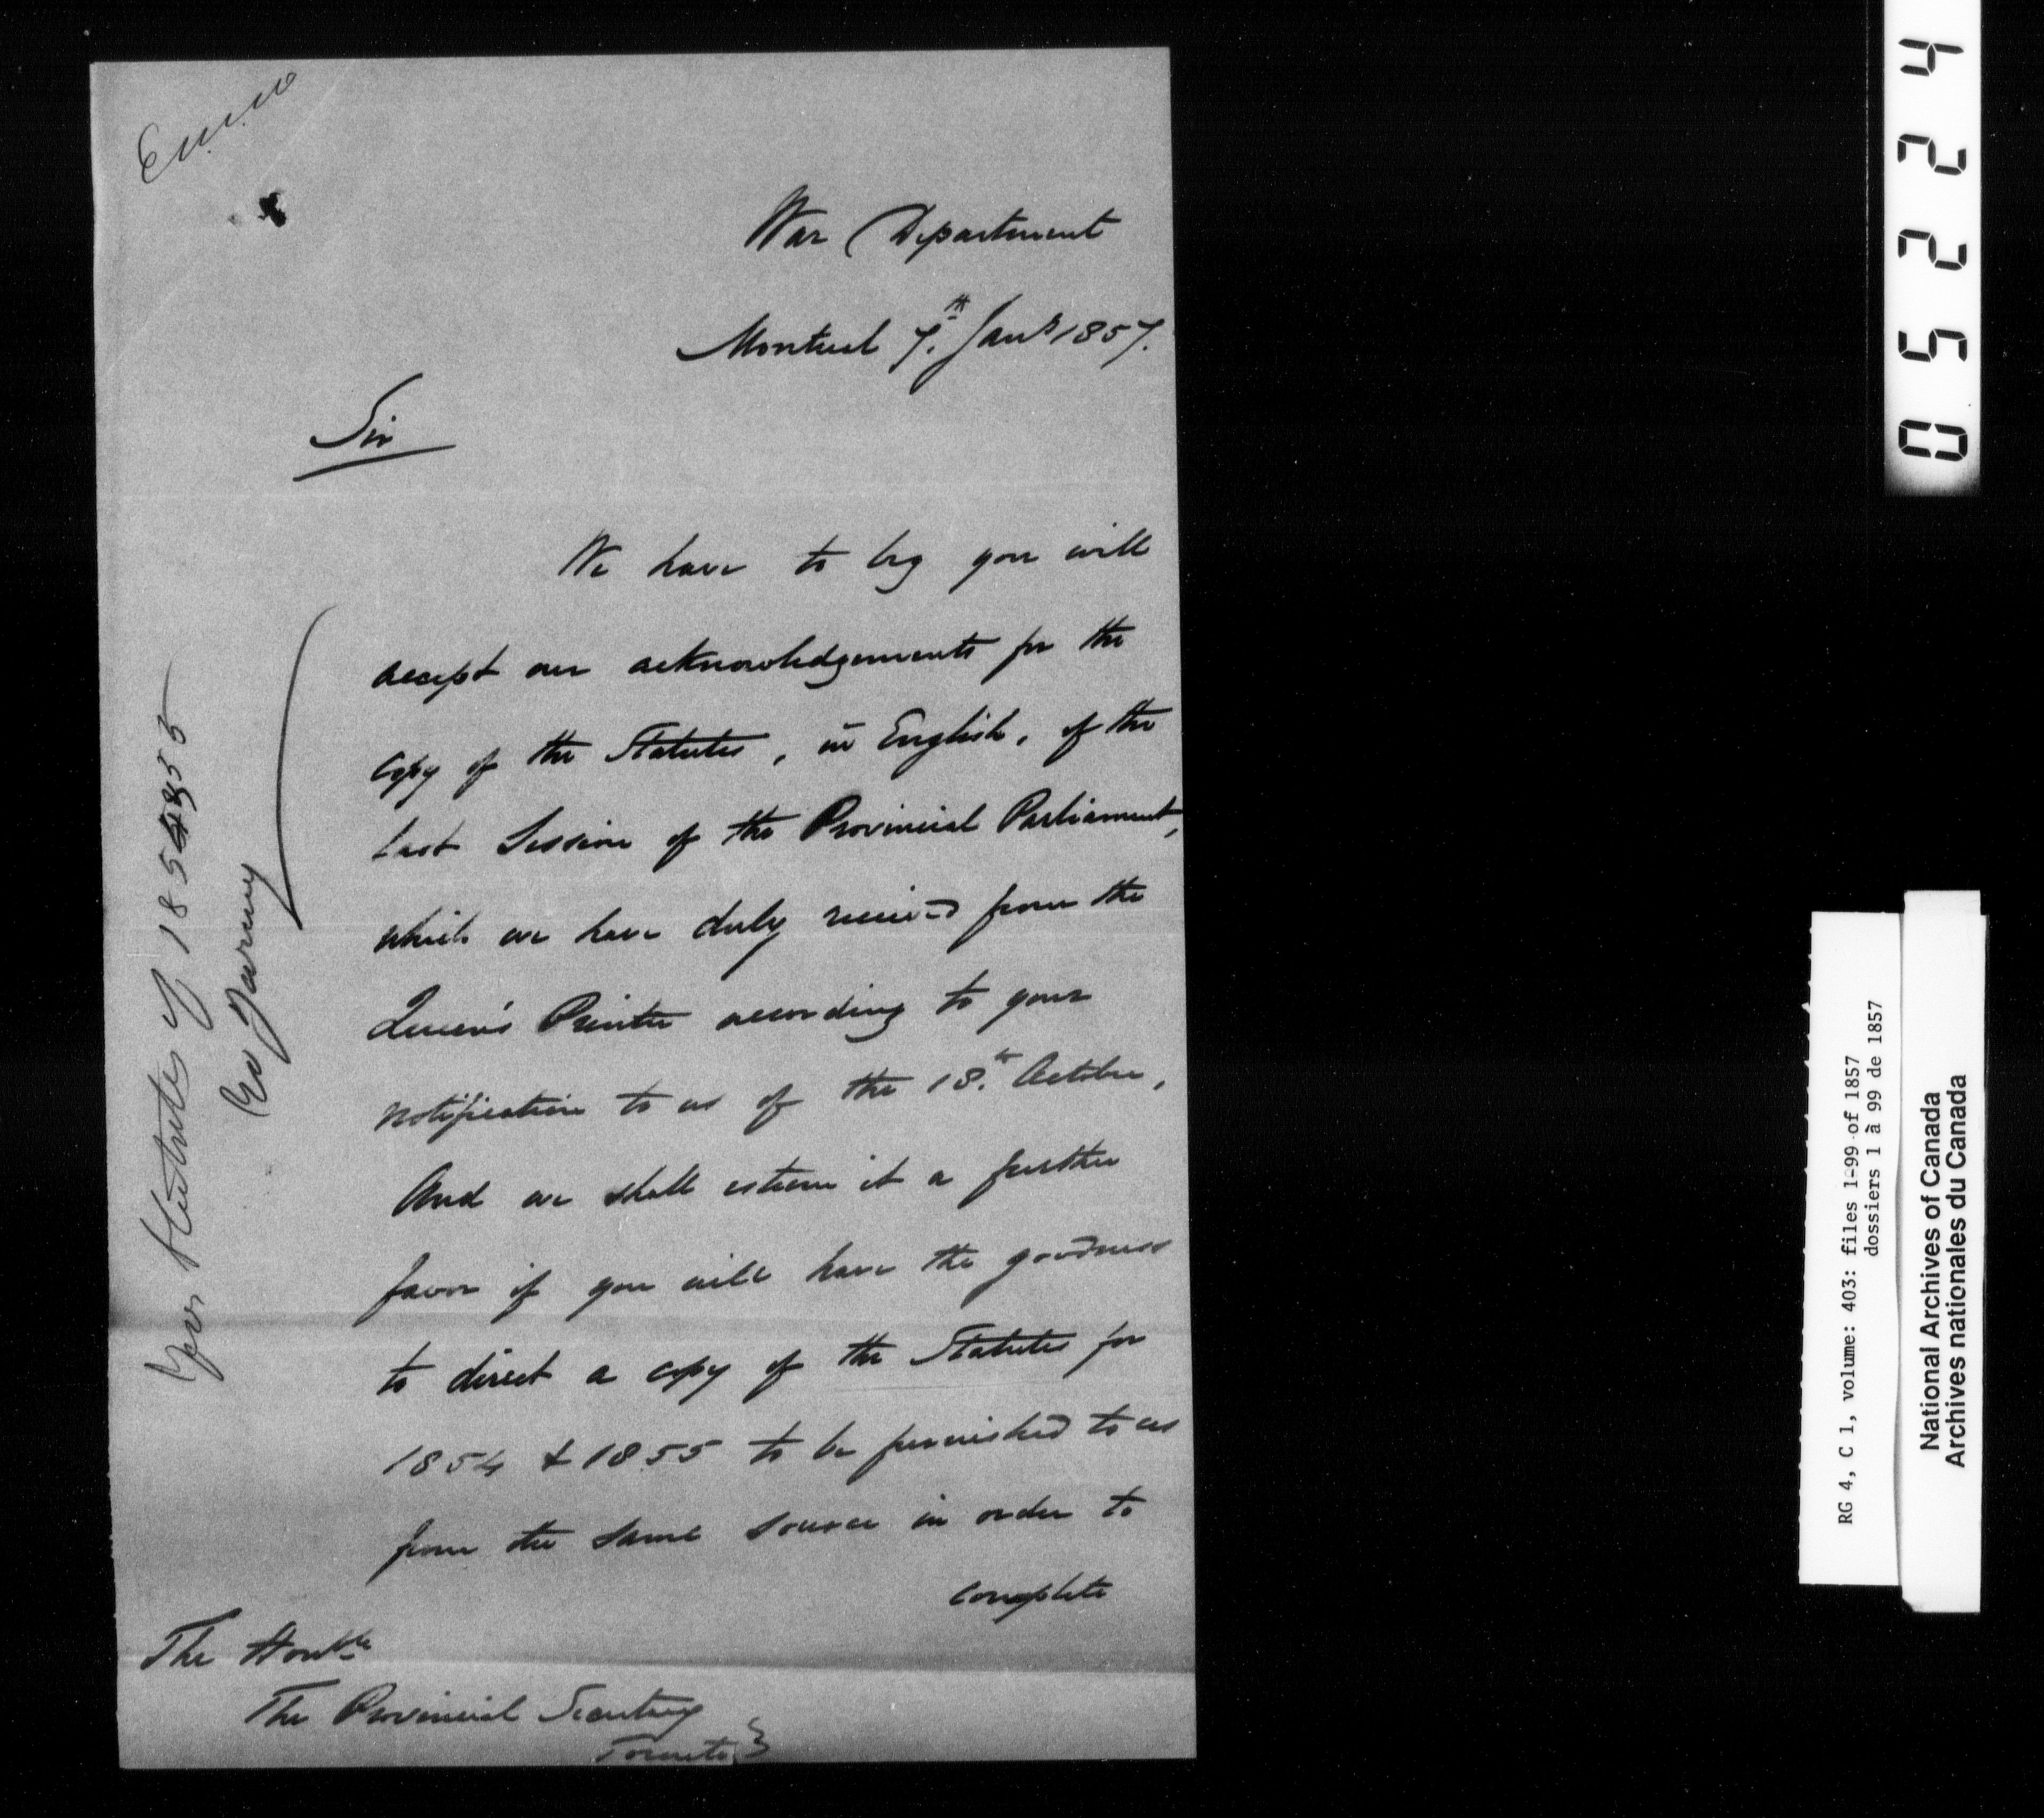 War Department
Montreal 7.th Jany 1857.
Sir
We have to beg you will
accept our acknowledgements for the
copy of the Statutes, in English, of the
last Session of the Provincial Parliament,
which we have duly received from the
Queen's Printer according to your
notification to us of the 18.th October,
And we shall esteem it a further
favor if you will have the goodness
to direct a copy of the Statutes for
1854 & 1855 to be furnished to us
from the same source in order to
complete
The Honble
The Provincial Secretary
Toronto
Statutes of 1854 55
05224
RG 4, C 1, volume: 403: files 1-99 of 1857
dossiers 1 à 99 de 1857
National Archives of Canada
Archives nationales du Canada